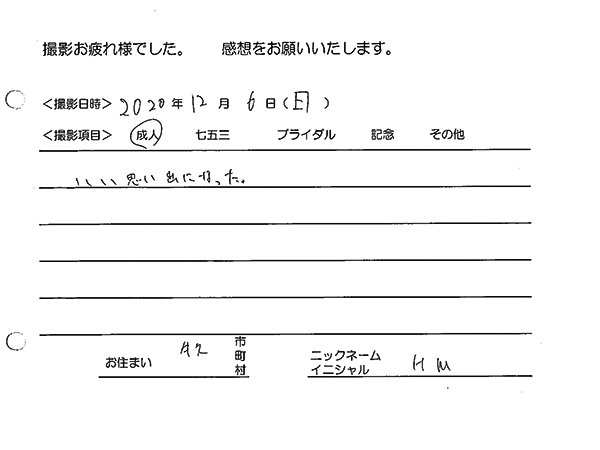 撮影お疲れ様でした。 感想をお願いいたします。
<撮影日時> 2020年 12月 6日(日)
<撮影項目> 成人 七五三 ブライダル 記念 その他
いい思い出になった。
お住まい 市町村
ニックネーム イニシャル H M